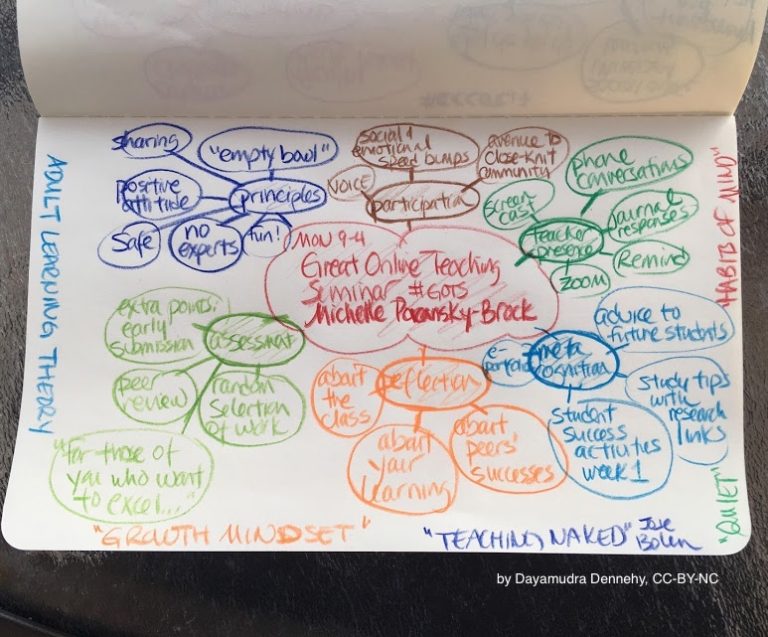 sharing
"empty bowl"
positive
attitude
principles
safe
no
experts
fun!
social &
emotional
speed bumps
avenue to
close-knit
community
VOICE
participation
screen
cast
phone
conversations
teacher
presence
journal
responses
Remind
ZOOM
MON 9-4
Great Online Teaching
Seminar #GOTS
Michelle Pacansky-Brock
extra points:
early
submission
assessment
peer
review
random
selection
of work
"for those of
you who want
to excel..."
about
the
class
reflection
about
your
learning
about
peers'
successes
e-
portfolio
meta
cognition
advice to
future students
study tips
with
research
links
student
success
activities
week 1
ADULT LEARNING THEORY
HABITS OF MIND"
"QUIET"
"GROWTH MINDSET"
"TEACHING NAKED" Jose
Bowen
by Dayamudra Dennehy, CC-BY-NC